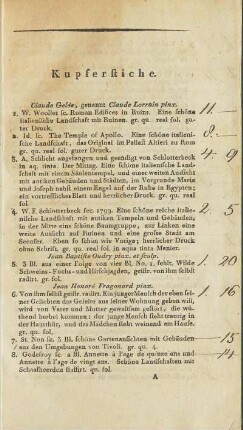 Kupferstiche.
Claude Gelée, genannt Claude Lorrain pinx.
1. W. Woollet sc. Roman Edifices in Ruins. Eine schöne 11 —
italienische Landschaft mit Ruinen. gr. qu. real fol. guter
Druck.
2. Id. sc. The Temple of Apollo. Eine schöne italieni- 8 —
sche Landschaft, das Original im Pallast Altieri zu Rom
gr. qu. real fol. guter Druck.
3. A. Schlicht angefangen und geendigt von Schlotterbeck 4 9
in aq. tinta. Der Mittag. Eine schöne italienische Land-
schaft mit einem Säulentempel, und einer weiten Aussicht
mit antiken Gebäuden und Städten, im Vorgrunde Maria
und Joseph nebst einem Engel auf der Ruhe in Egypten;
ein vortreffliches Blatt und herrlicher Druck. gr. qu. real
fol.
4. W. F. Schlotterbeck fec. 1793. Eine schöne reiche italie- 2 5
nische Landschaft mit antiken Tempeln und Gebäuden,
in der Mitte eine schöne Baumgruppe, zur Linken eine
weite Aussicht auf Ruinen und eine große Stadt am
Seeufer. Eben so schön wie Voriges; herrlicher Druck
ohne Schrift. gr. qu. real fol. in aqua tinta Manier.
Jean Baptiste Oudry pinx. et sculp.
5. 3 Bl. aus einer Folge von vier Bl. No. 1, fehlt, Wilde 1. 20
Schweins- Fuchs- und Hirschjagden, geistr. von ihm selbst
radirt. gr. fol.
Jean Honoré Fragonard pinx.
6. Von ihm selbst geistr. radirt. Ein junger Mensch der eben 1. 16
seiner Geliebten das Geleite aus seiner Wohnung geben will,
wird von Vater und Mutter gewaltsam gestört, die
wühend herbei kommen: der junge Mensch steht traurig in
der Hausthür, und das Mädchen steht weinend am Hause.
gr. qu. fol.
7. St. Non sc. 3 Bl. schöne Gartenansichten mit Gebäuden — 15
aus den Umgebungen von Tivoli. gr. qu. 4.
8. Godefroy sc. 2 Bl. Annette à l'age de quinze ans und — 14
Annette à l'age de vingt ans. Schöne Landschaften mit
Schnafheerden staffirt. qu. fol.
A